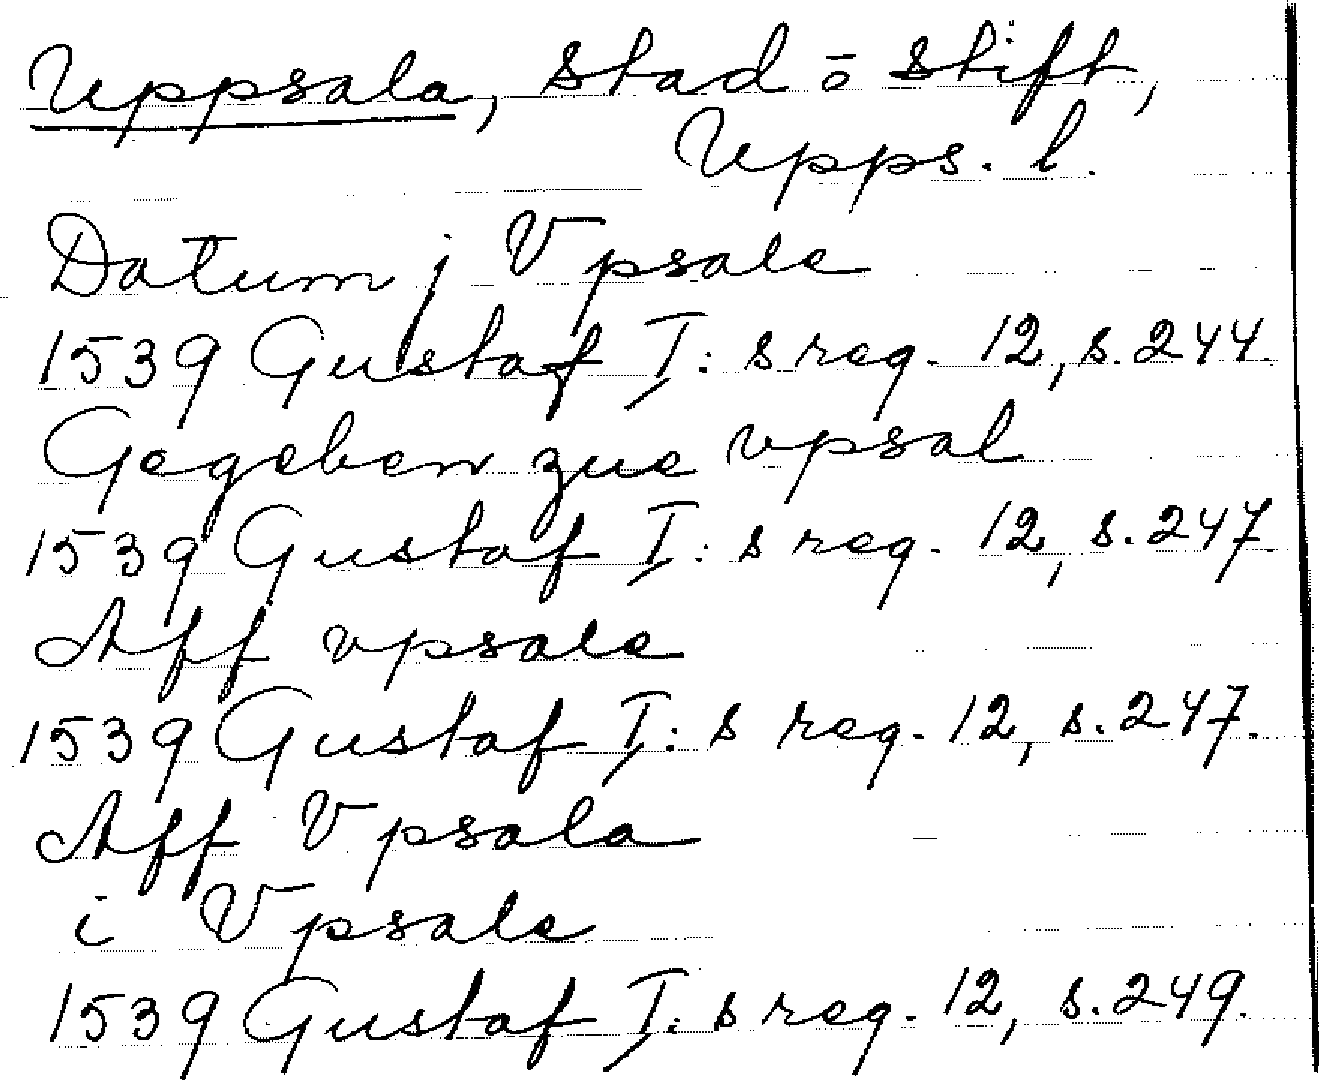 Uppsala, stad ō stift,
Upps. l.
Datum j Vpsale
1539 Gustaf I:s reg. 12, s. 244
Gegeben zue vpsal
1539 Gustaf I:s reg. 12, s. 247
Aff vpsale
1539 Gustaf I:s reg. 12, s. 247.
Aff Vpsala
i Vpsale
1539 Gustaf I:s reg. 12, s. 249.